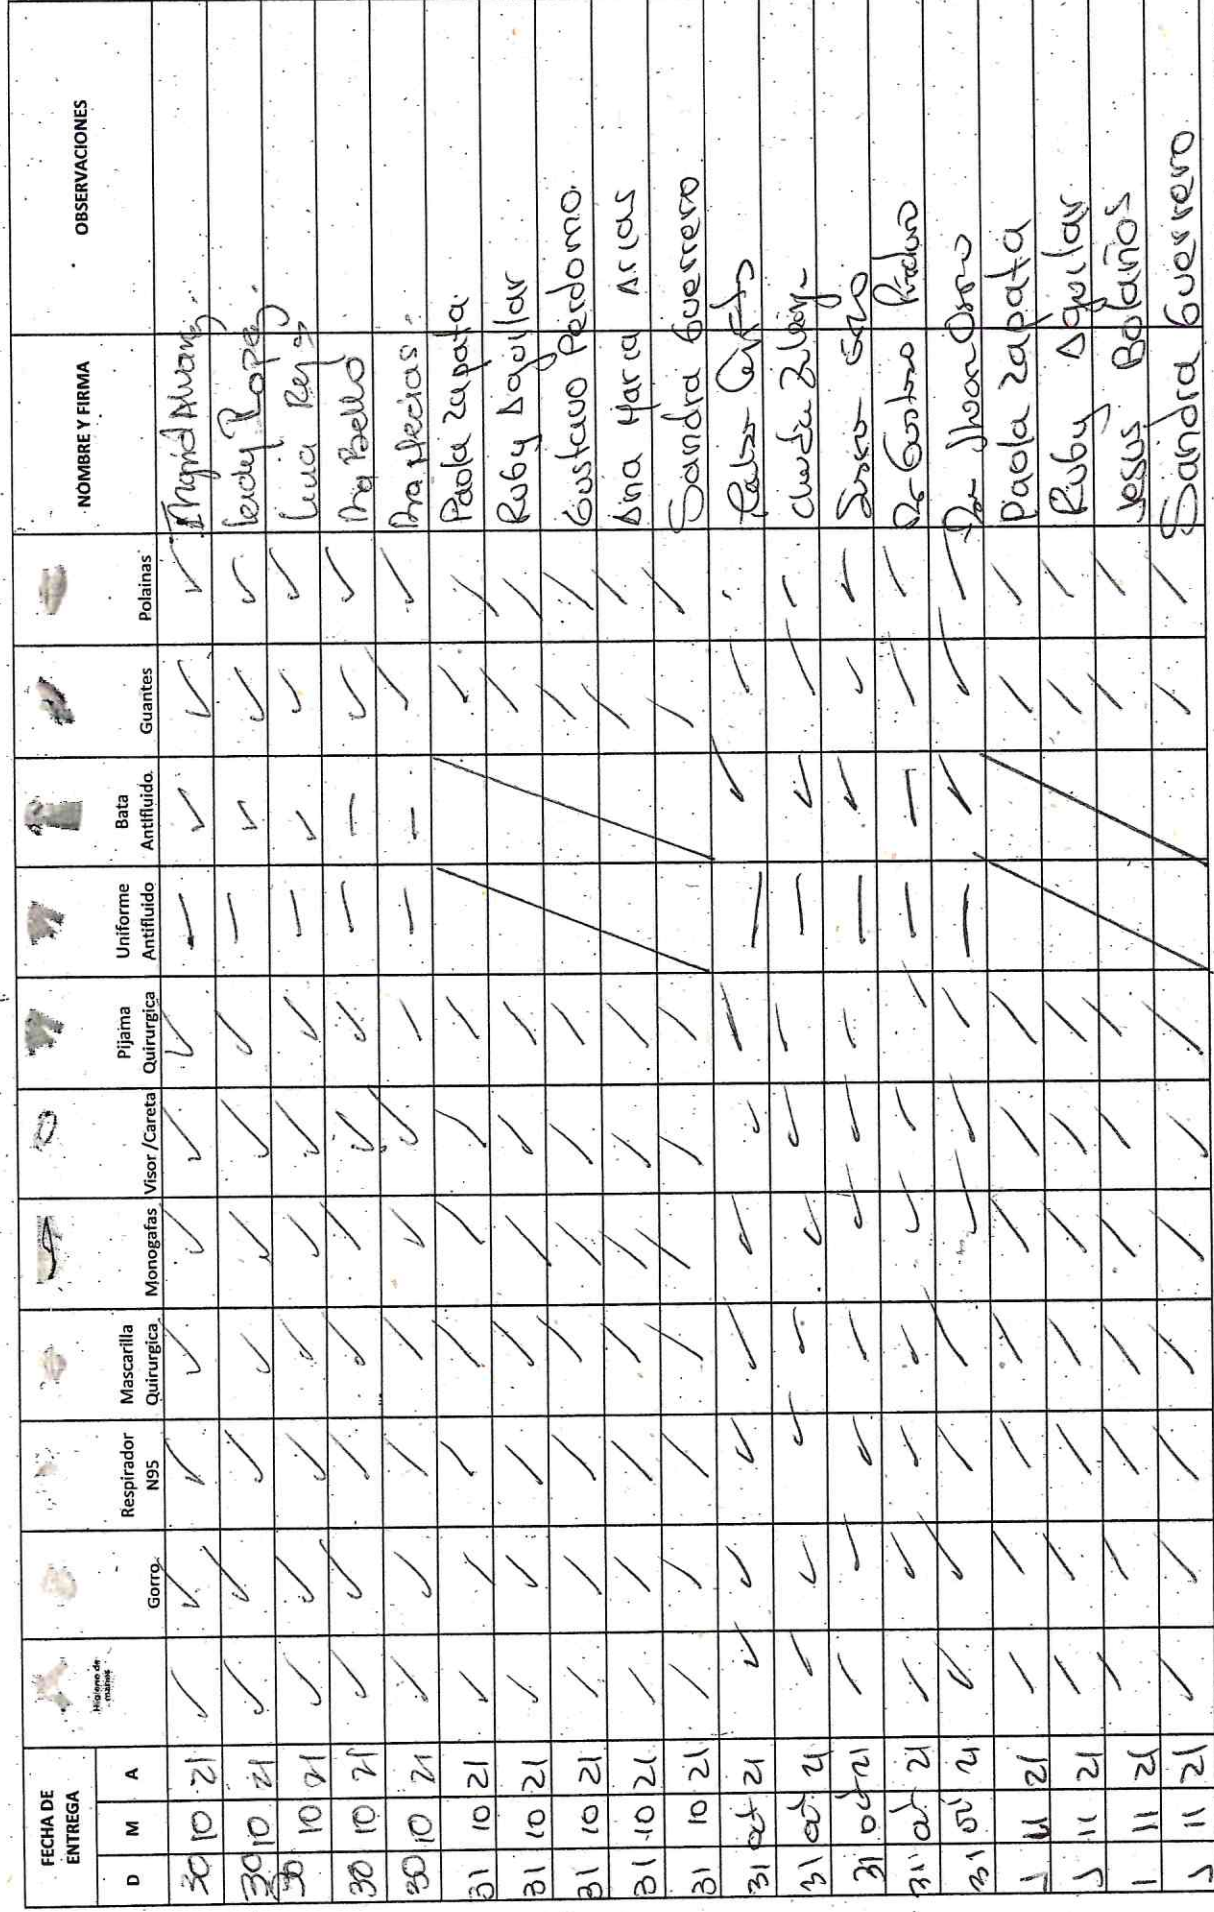 FECHA DE ENTREGA
D M A
Higiene de manos
Gorro
Respirador N95
Mascarilla Quirurgica
Monogafas
Visor /Careta
Pijama Quirurgica
Uniforme Antifluido
Bata Antifluido
Guantes
Polainas
NOMBRE Y FIRMA
OBSERVACIONES
30 10 21 ✓ ✓ ✓ ✓ ✓ ✓ ✓ — ✓ ✓ ✓ Ingrid Alvarez
30 10 21 ✓ ✓ ✓ ✓ ✓ ✓ ✓ — ✓ ✓ ✓ leidy Lopez
30 10 21 ✓ ✓ ✓ ✓ ✓ ✓ ✓ — ✓ ✓ ✓ Lucia Rey
30 10 21 ✓ ✓ ✓ ✓ ✓ ✓ ✓ — — ✓ ✓ Dra Bello
30 10 21 ✓ ✓ ✓ ✓ ✓ ✓ ✓ — — ✓ ✓ Dra Mecias
31 10 21 ✓ ✓ ✓ ✓ ✓ ✓ ✓ ✓ ✓ Paola Zapata
31 10 21 ✓ ✓ ✓ ✓ ✓ ✓ ✓ ✓ ✓ Ruby Aguilar
31 10 21 ✓ ✓ ✓ ✓ ✓ ✓ ✓ ✓ ✓ Gustavo Perdomo
31 10 21 ✓ ✓ ✓ ✓ ✓ ✓ ✓ ✓ ✓ Ana Maria Arias
31 10 21 ✓ ✓ ✓ ✓ ✓ ✓ ✓ ✓ ✓ Sandra Guerrero
31 oct 21 ✓ ✓ ✓ ✓ ✓ ✓ ✓ — ✓ ✓
31 oct 21 ✓ ✓ ✓ ✓ ✓ ✓ ✓ — ✓ ✓ ✓
31 oct 21 ✓ ✓ ✓ ✓ ✓ ✓ ✓ — ✓ ✓ ✓
31 oct 21 ✓ ✓ ✓ ✓ ✓ ✓ ✓ — — ✓ ✓ Dr Gustavo
31 21 ✓ ✓ ✓ ✓ ✓ ✓ ✓ — ✓ ✓ ✓ Osorio
1 11 21 ✓ ✓ ✓ ✓ ✓ ✓ ✓ ✓ ✓ Paola Zapata
1 11 21 ✓ ✓ ✓ ✓ ✓ ✓ ✓ ✓ ✓ Ruby Aguilar
1 11 21 ✓ ✓ ✓ ✓ ✓ ✓ ✓ ✓ ✓ Jesus Bolaños
1 11 21 ✓ ✓ ✓ ✓ ✓ ✓ ✓ ✓ ✓ Sandra Guerrero